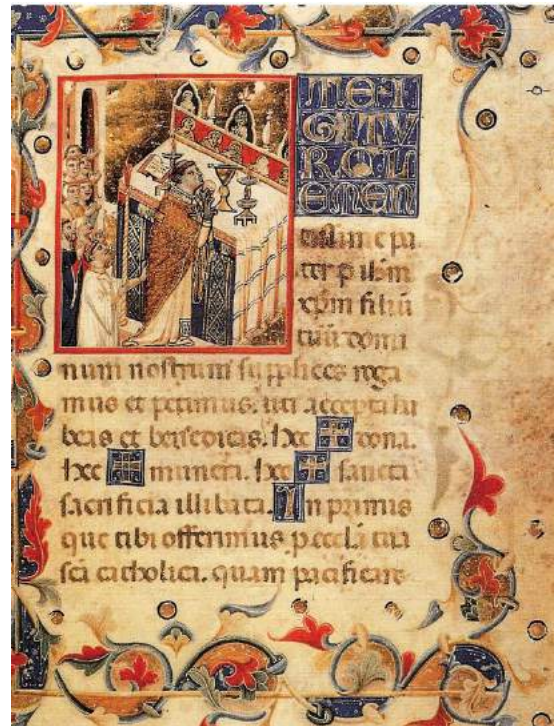 M E I
GITV
R CL
EMEN
tissime pa
ter p ihm
xpm filiū
tuū domi
num nostrum supplices roga
mus et petimus. uti accepta ha
beas et benedicas. hec ✠ dona.
hec ✠ munera. hec ✠ sancta
sacrificia illibata. In primis
que tibi offerimus p eccl̄ia tua
sc̄a catholica. quam pacificare